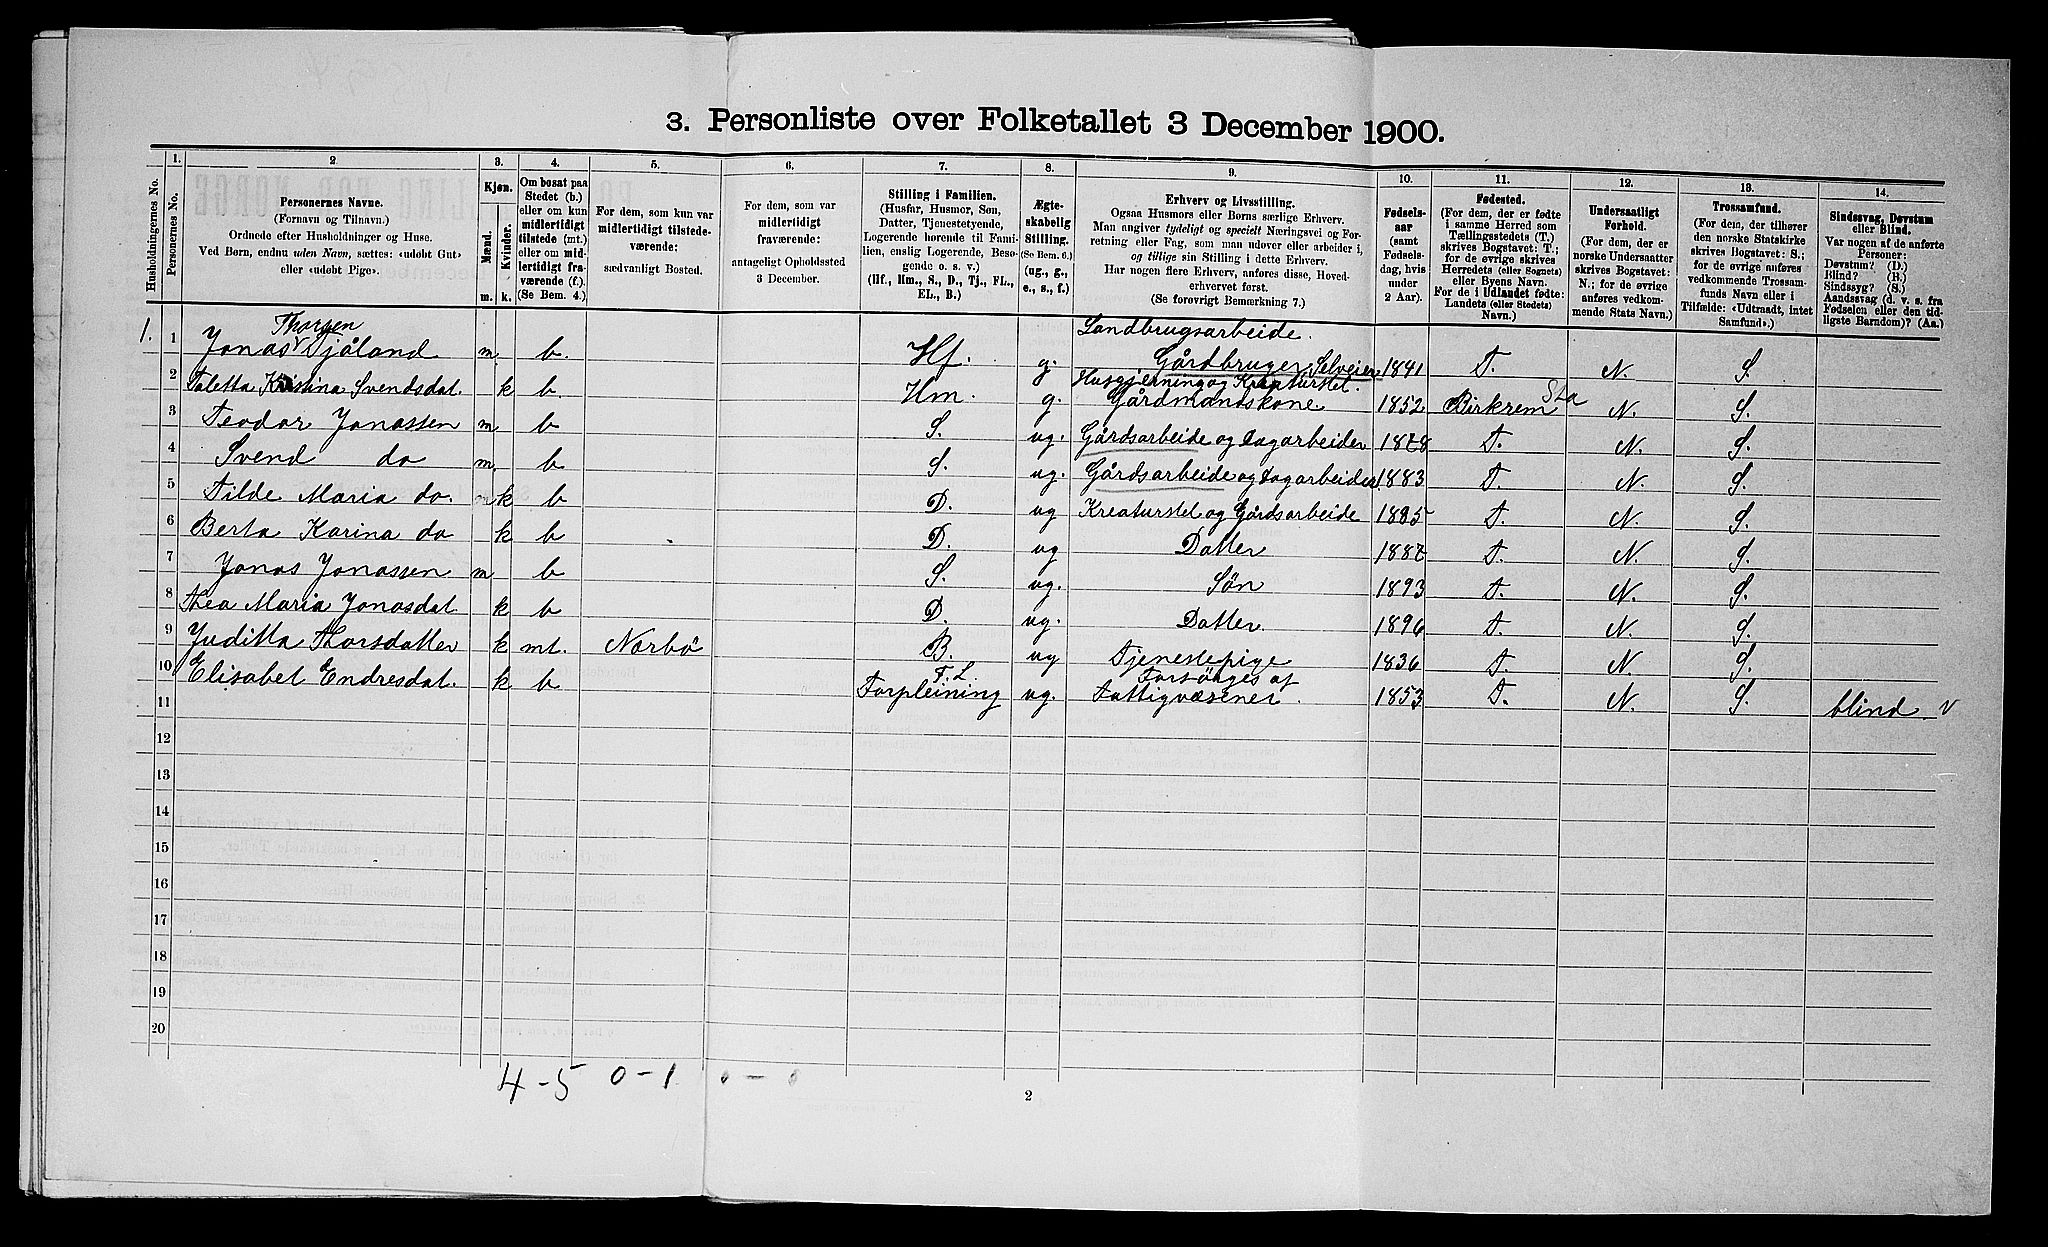 3. Personliste over Folketallet 3 December 1900.
Husholdningernes No.
1.
Personernes No.
2
Personernes Navne.
(Fornavn og Tilnavn.)
Ordnede efter Husholdninger og Huse.
Ved Børn, endnu uden Navn, sættes: «udøbt Gut»
eller «udøbt Pige».
3.
Kjøn.
Mænd.
Kvinder.
m. k.
4.
Om bosat paa
Stedet (b.)
eller om kun
midlertidigt
tilstede (mt.)
eller om mid-
lertidigt fra-
værende (f.).
(Se Bem. 4.)
5.
For dem, som kun var
midlertidigt tilstede-
værende:
sædvanligt Bosted.
6.
For dem, som var
midlertidigt
fraværende:
antageligt Opholdssted
3 December.
7.
Stilling i Familien.
(Husfar, Husmor, Søn,
Datter, Tjenestetyende,
Logerende hørende til Fami-
lien, enslig Logerende, Besø-
gende o. s. v.)
(Hf., Hm., S., D., Tj., FL.,
EL., B.)
8.
Ægte-
skabelig
Stilling.
(Se Bem. 6.)
(ug., g.,
e., s., f.)
9.
Erhverv og Livsstilling.
Ogsaa Husmors eller Børns særlige Erhverv.
Man angiver tydeligt og specielt Næringsvei og For-
retning eller Fag, som man udover eller arbeider i,
og tillige sin Stilling i dette Erhverv.
Har nogen flere Erhverv, anføres disse, Hoved-
erhvervet først.
(Se forøvrigt Bemærkning 7.)
10.
Fødsels-
aar
(samt
Fødsels-
dag, hvis
under
2 Aar).
11.
Fødested.
(For dem, der er fødte
i samme Herred som
Tællingsstedets (T.)
skrives Bogstavet: T.;
for de øvrige skrives
Herredets (eller Sognets)
eller Byens Navn.
For de i Udlandet fødte:
Landets (eller Stedets)
Navn.)
12.
Undersaatligt
Forhold.
(For dem, der er
norske Undersaatter
skrives Bogstavet:
N.; for de øvrige
anføres vedkom-
mende Stats Navn.)
13.
Trossamfund.
(For dem, der tilhører
den norske Statskirke
skrives Bogstavet: S.;
for de øvrige anføres
vedkommende Trossam-
funds Navn eller i
Tilfælde: «Udtraadt, intet
Samfund».)
14.
Sindssvag, Døvstum
eller Blind.
Var nogen af de anførte
Personer:
Døvstum? (D.)
Blind? (B.)
Sindssyg? (S.)
Aandssvag (d. v. s. fra
Fødselen eller den tid-
ligste Barndom)? (Aa.)
Thorsen Landbrugsarbeide.
1. 1 Jonas Tjåland m. b. Hf. g. Gårdbruger Selveier 1841 T. N. S.
Husgjerning og Kreaturstel.
2 Taletta Kristina Svendsdat. k b. Hm. g. Gårdmandskone 1852 Birkrem Sta N. S.
3 Teodor Jonassen m b S. ug. Gårdsarbeide og Dagarbeider 1878 T. N. S.
4 Svend do m. b S. ug. Gårdsarbeide og Dagarbeider 1883 T. N. S.
5 Tilde Maria do. k b D. ug Kreaturstel og Gårdsarbeide 1885 T. N. S.
6 Berta Karina do k b D. ug Datter 1887 T. N. S.
7 Jonas Jonassen m b S. ug. Søn 1893 T. N. S.
8 Thea Maria Jonasdat. k b D. ug. Datter. 1896 T. N. S.
9 Juditta Thorsdatter k mt. Norbö B. ug Tjenestepige 1836 T. N. S.
F. L. Forsörges af
10 Elisabet Endresdat. k b Forpleining ug. Fattigvæsenet. 1853 T. N. S. blind. v
11
12
13
14
15
16
17
18
19
20
4 - 5 0 - 1 0 - 0
2